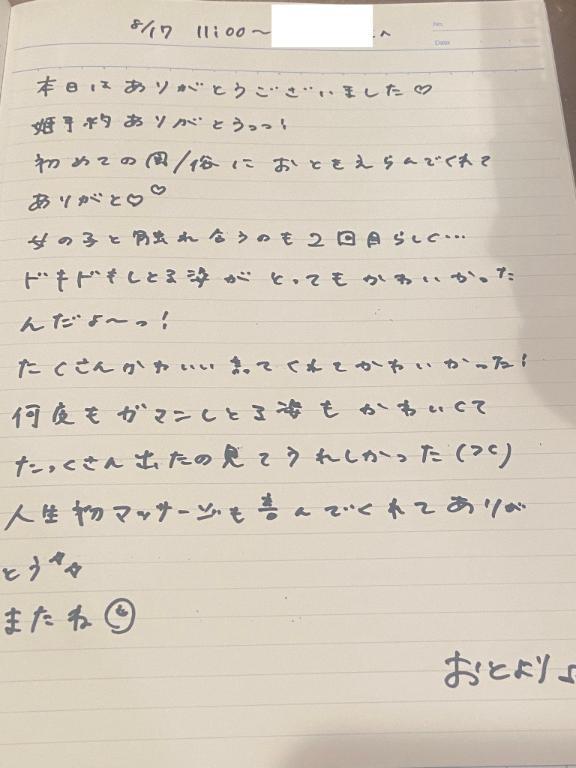 8/17 11:00〜 へ
No.
Date
本日はありがとうございました♡
姫予約ありがとうっっ!
初めての風/俗におとをえらんでくれて
ありがと♡♡
女の子と触れ合うのも2回目らしく…
ドキドキしとる姿がとってもかわいかった
んだよ〜っ!
たくさんかわいい言ってくれてかわいかった!
何度もガマンしとる姿もかわいくて
たっくさん出たの見てうれしかった(つ⊂)
人生初マッサージも喜んでくれてありが
とう☆☆
またね☺
おとより♪